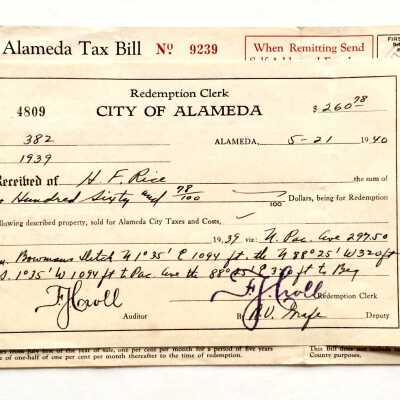 Alameda Tax Bill Nº 9239 When Remitting Send
FIRS
Redemption Clerk
4809 CITY OF ALAMEDA $260.78
382 ALAMEDA, 5-21 1940
1939
Received of H F. Rice the sum of
Hundred Sixty and 78/100 /100 Dollars, being for Redemption
following described property, sold for Alameda City Taxes and Costs,
1939 viz N. Pac. Ave 297.50
Bowmans Sketch N 1°35' E 1094 ft. th N 88°25' W 320 ft
S. 1°35' W 1094 ft to Pac. Ave th 88°25' E 320 ft to Beg
F J Croll F. J. Croll Redemption Clerk
Auditor By Deputy
per cent per month for a period of five years
e of one-half of one per cent per month thereafter to the time of redemption.
This Bill does
County purposes.